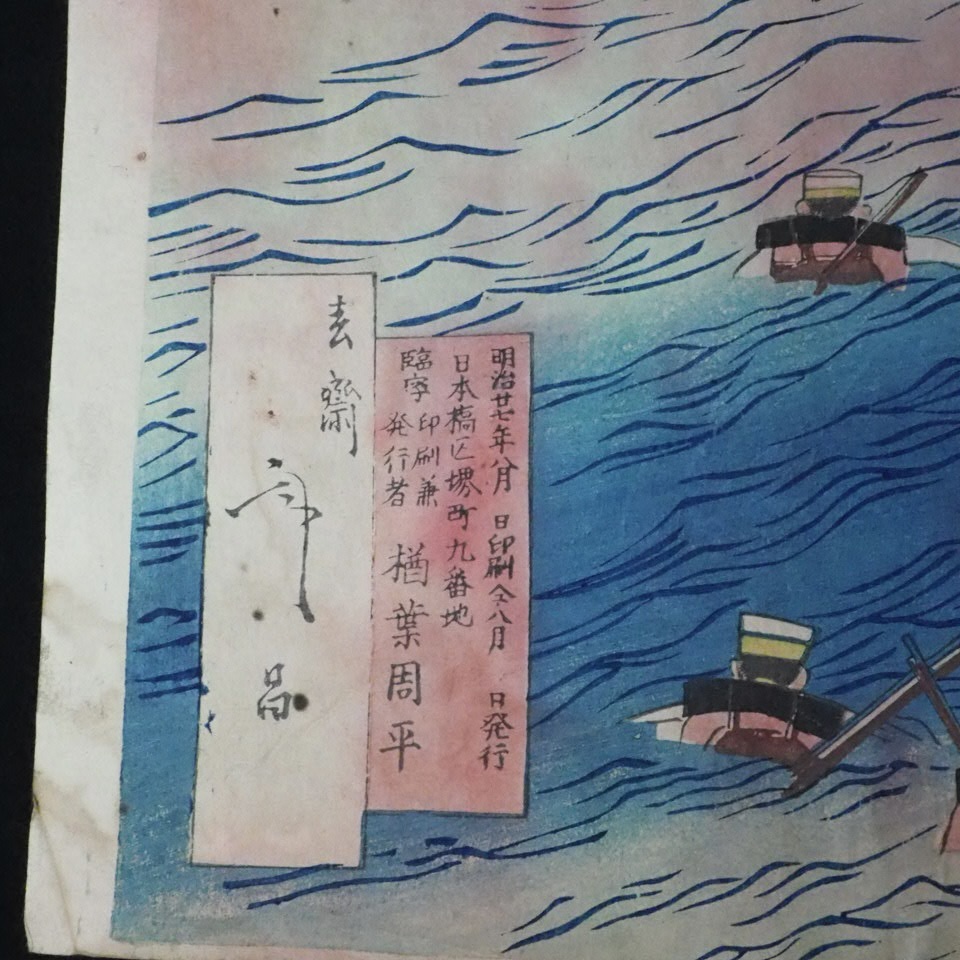 明治廿七年八月 日印刷仝八月 日発行
日本橋区堺町九番地
臨写印刷兼
発行者 楢葉周平
玄齋
年昌